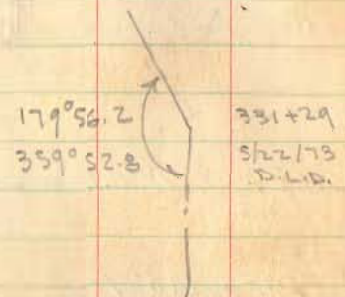 179°56.2
359°52.8
331+29
5/22/73
D.L.D.